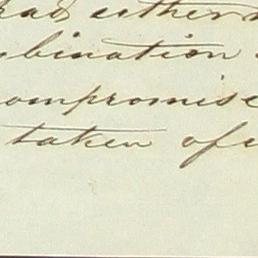 had either
bination
compromise
taken of